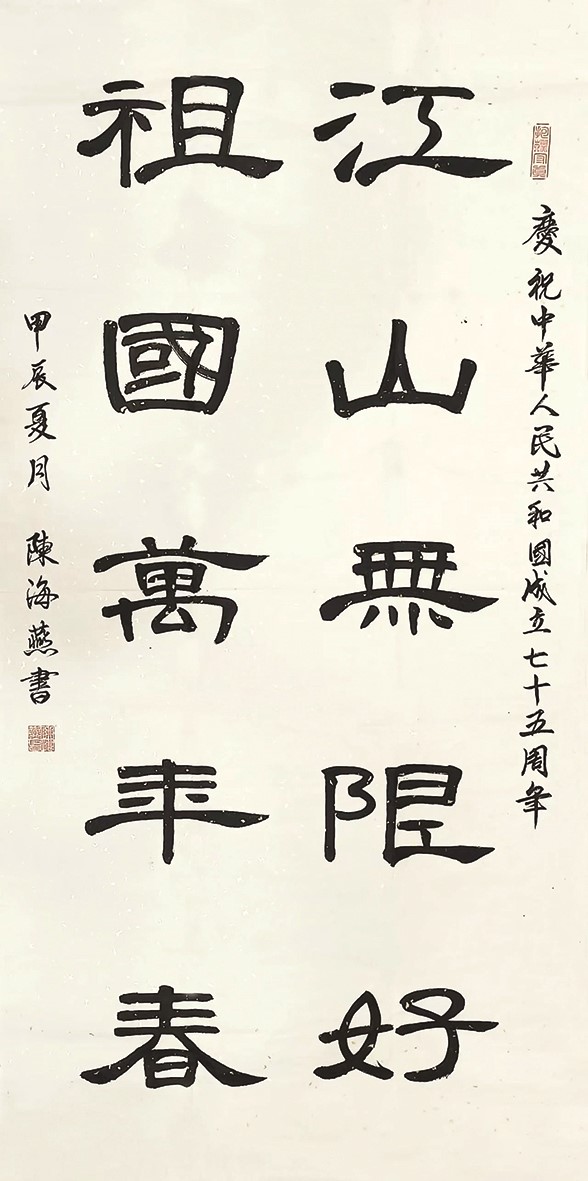 慶祝中華人民共和國成立七十五周年
江山無限好
祖國萬年春
甲辰夏月 陳海燕書